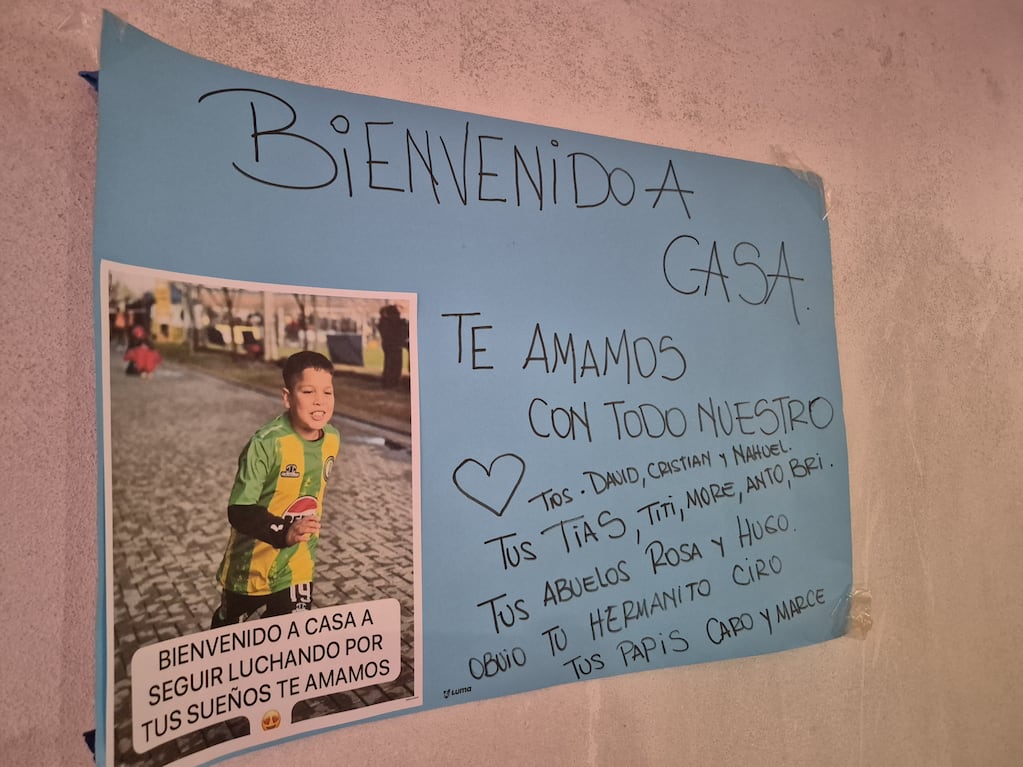 BIENVENIDO A
CASA.
TE AMAMOS
CON TODO NUESTRO
TIOS. DAVID, CRISTIAN Y NAHUEL.
TUS TIAS, TITI, MORE, ANTO, BRI.
TUS ABUELOS ROSA Y HUGO.
OBVIO TU HERMANITO CIRO
TUS PAPIS CARO Y MARCE
Luma
19
BIENVENIDO A CASA A
SEGUIR LUCHANDO POR
TUS SUEÑOS TE AMAMOS